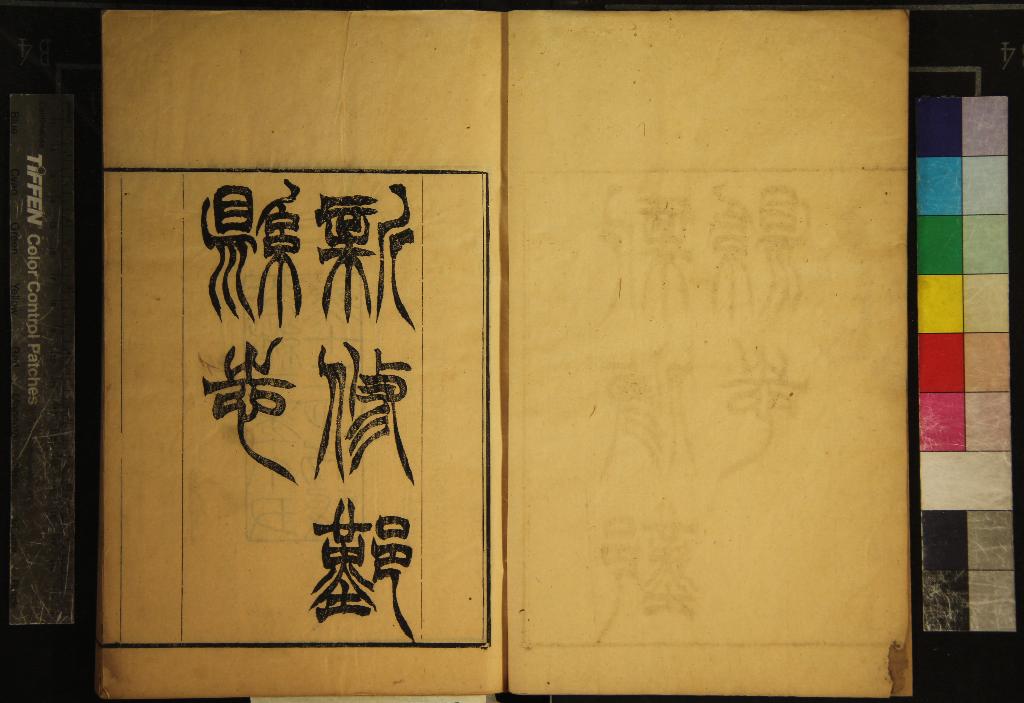 新修鄞
縣志
TIFFEN Color Control Patches
B4